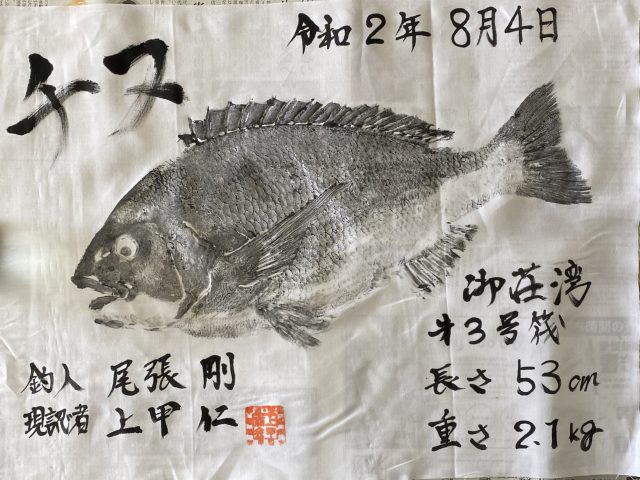 令和2年 8月4日
チヌ
御荘湾
才3号筏
長さ 53cm
重さ 2.1kg
釣人 尾張 剛
現認者 上甲 仁